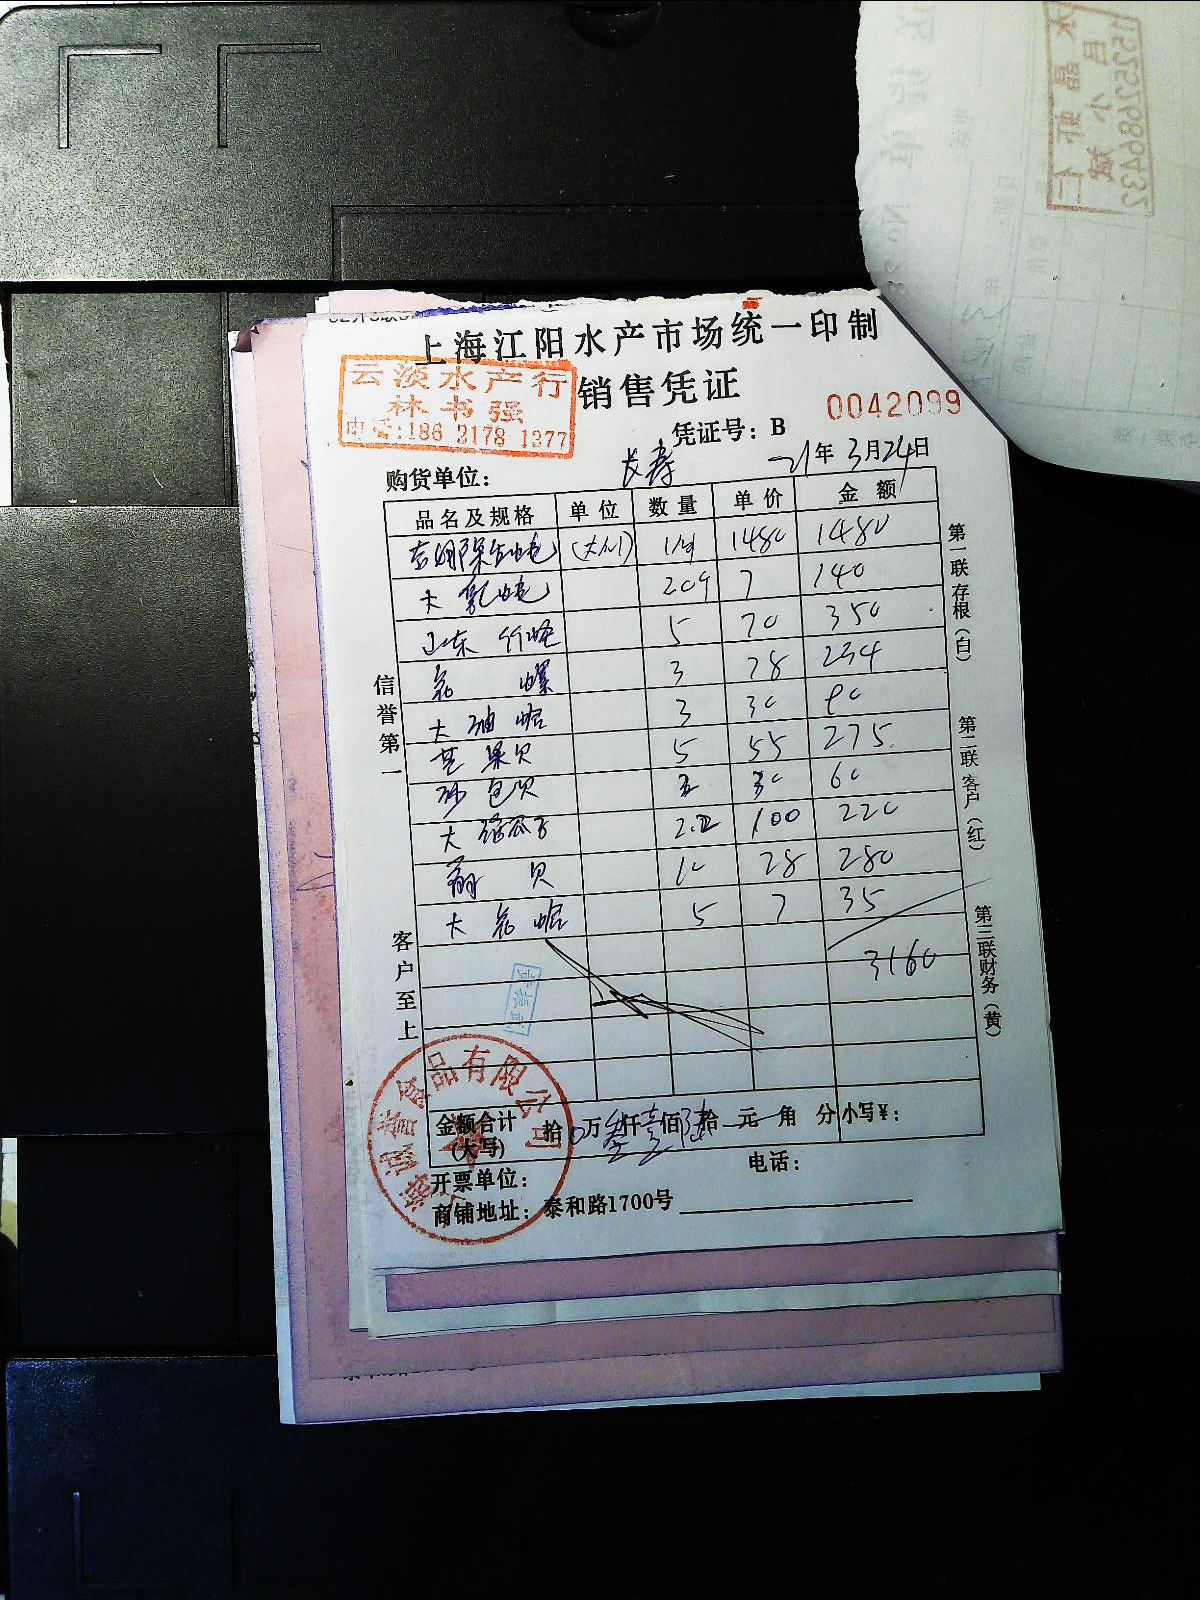 上海江阳水产市场统一印制
云淡水产行
林书强
电话:186 2178 1377
销售凭证
0042099
凭证号：B
购货单位：长寿 21年3月24日
品名及规格 单位 数量 单价 金额
(大小) 1480 1480
大 7 140
山东竹蛏 5 70 350
花螺 3 78 234
大油蛤 3 30 90
芒果贝 5 55 275
沙包贝 30 60
大 瓜子 2.2 100 220
扇贝 10 28 280
大花蛤 5 7 35
3160
信誉第一
客户至上
第一联存根(白)
第二联客户(红)
第三联财务(黄)
金额合计(大写) 拾0万叁仟壹佰陆拾元角分 小写¥：
开票单位：
电话：
商铺地址：泰和路1700号
食品有限公司
15252686432
吕小斌
水晶虾仁